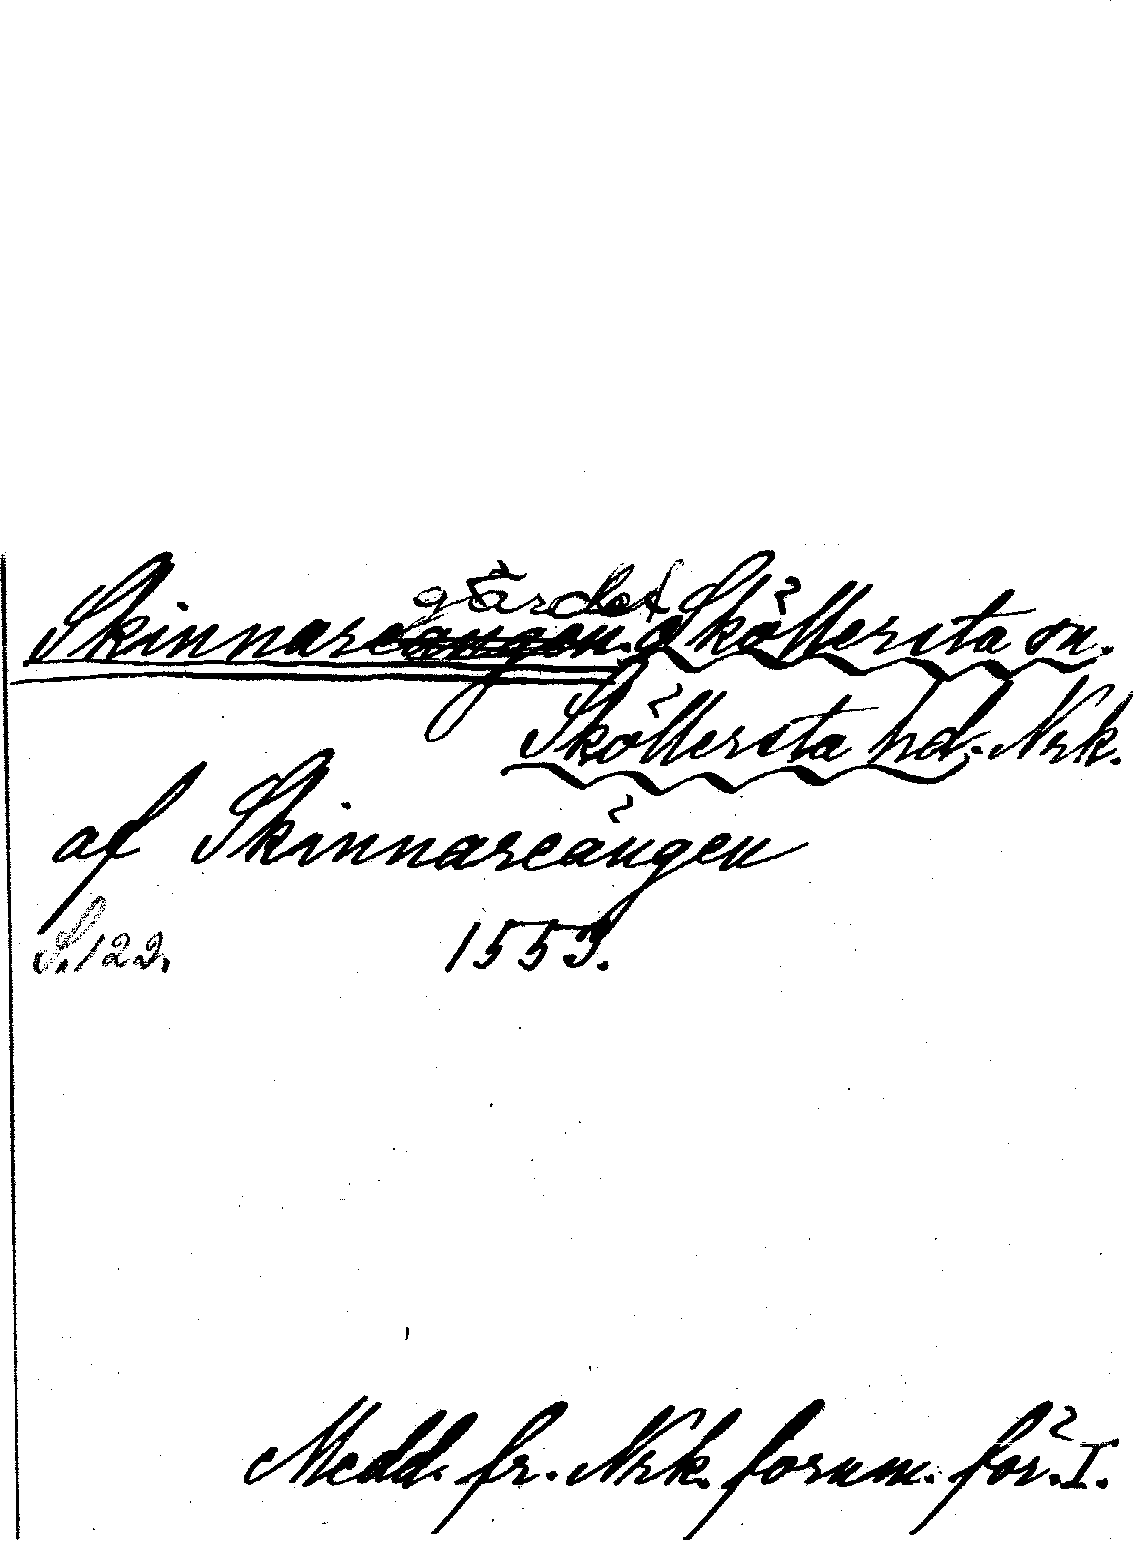 Skinnaregärdet g Sköllersta sn.
Sköllersta hd. Nrk.
af Skinnareängen
S. 122. 1553.
Medd. fr. Nrk. fornm. för. I.